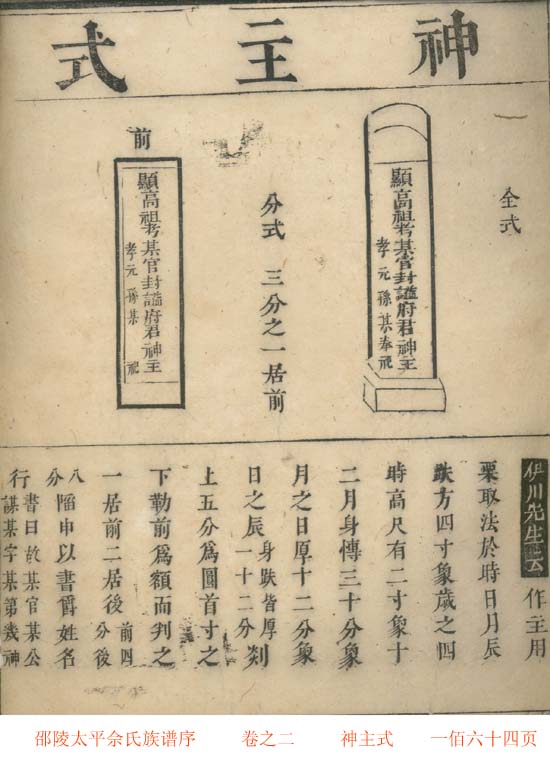 神主式
全式
顯高祖考某官封謚府君神主
孝元孫某奉祀
分式 三分之一居前
前
顯高祖考某官封謚府君神主
孝元孫某 祀
伊川先生云 作主用
栗取法於時日月辰
趺方四寸象歲之四
時高尺有二寸象十
二月身慱三十分象
月之日厚十二分象
日之辰 身趺皆厚一十二分 剡
上五分為圓首寸之
下勒前為額而判之
一居前二居後 前四分後
八分 陷中以書爵姓名
行 書曰故某官某公
諱某字某第幾神
邵陵太平余氏族谱序 卷之二 神主式 一佰六十四页